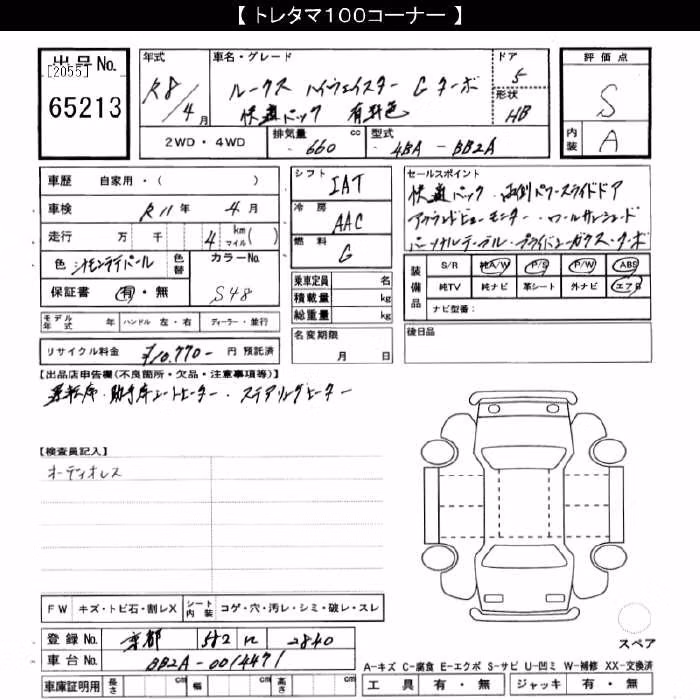 【 トレタマ100コーナー 】
出品No.
[2055]
65213
年式
R8/4月
車名・グレード
ルークス ハイウェイスター Gターボ
快適パック 有料色
ドア
5
形状
HB
評価点
S
内装
A
2WD・4WD
排気量 660 cc
型式 4BA-BB2A
車歴 自家用・( )
車検 R11年 4月
走行 万 千 4 km マイル( )
色 シモンライパール 色替
カラーNo. S48
保証書 有・無
モデル年式 年 ハンドル 左・右 ディーラー・並行
リサイクル料金 ¥10,770- 円 預託済
シフト IAT
冷房 AAC
燃料 G
乗車定員 名
積載量 kg
総重量 kg
名変期限
月 日
セールスポイント
快適パック・両側パワースライドドア
アラウンドビューモニター・ロールサンシェード
パーソナルテーブル・プライバシーガラス・ターボ
装備品
S/R 純A/W P/S P/W ABS
純TV 純ナビ 革シート 外ナビ エアB
ナビ型番：
後日品
【出品店申告欄(不良箇所・欠品・注意事項等)】
運転席・助手席シートヒーター・ステアリングヒーター
【検査員記入】
オーディオレス
FW キズ・トビ石・割レX シート内装 コゲ・穴・汚レ・シミ・破レ・スレ
登録No. 京都 582 に 2840
車台No. BB2A-0014471
車庫証明用 長さ cm 幅 cm 高さ cm
スペア
A-キズ C-腐食 E-エクボ S-サビ U-凹ミ W-補修 XX-交換済
工具 有・無 ジャッキ 有・無